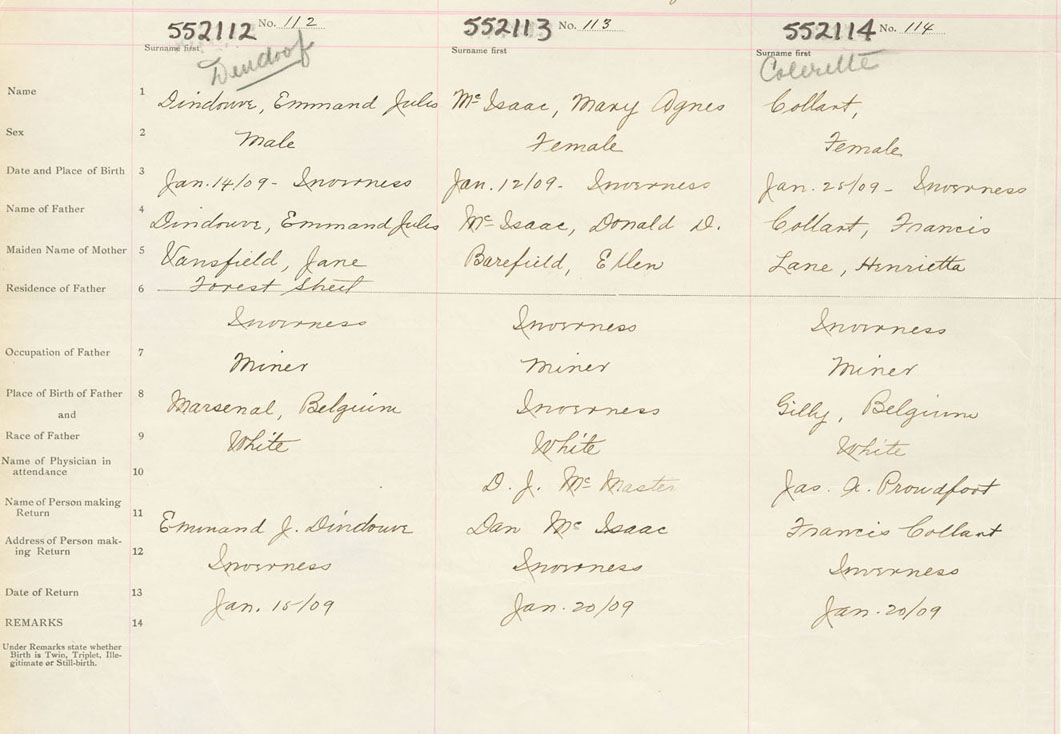 552112 No. 112 552113 No. 113 552114 No. 114
Surname first Surname first Surname first
Dindoof Colerette
Name 1 Dindouve, Emmand Jules Mc Isaac, Mary Agnes Collart,
Sex 2 Male Female Female
Date and Place of Birth 3 Jan. 14/09 - Inverness Jan. 12/09 - Inverness Jan. 25/09 - Inverness
Name of Father 4 Dindouve, Emmand Jules Mc Isaac, Donald D. Collart, Francis
Maiden Name of Mother 5 Vansfield, Jane Barefield, Ellen Lane, Henrietta
Residence of Father 6 Forest Street
Inverness Inverness Inverness
Occupation of Father 7 Miner Miner Miner
Place of Birth of Father 8 Marsenal, Belgium Inverness Gilly, Belgium
and
Race of Father 9 White White White
Name of Physician in
attendance 10 D. J. Mc Master Jas. A. Proudfoot
Name of Person making
Return 11 Emmand J. Dindouve Dan Mc Isaac Francis Collart
Address of Person mak-
ing Return 12 Inverness Inverness Inverness
Date of Return 13 Jan. 15/09 Jan. 20/09 Jan. 20/09
REMARKS 14
Under Remarks state whether
Birth is Twin, Triplet, Ille-
gitimate or Still-birth.